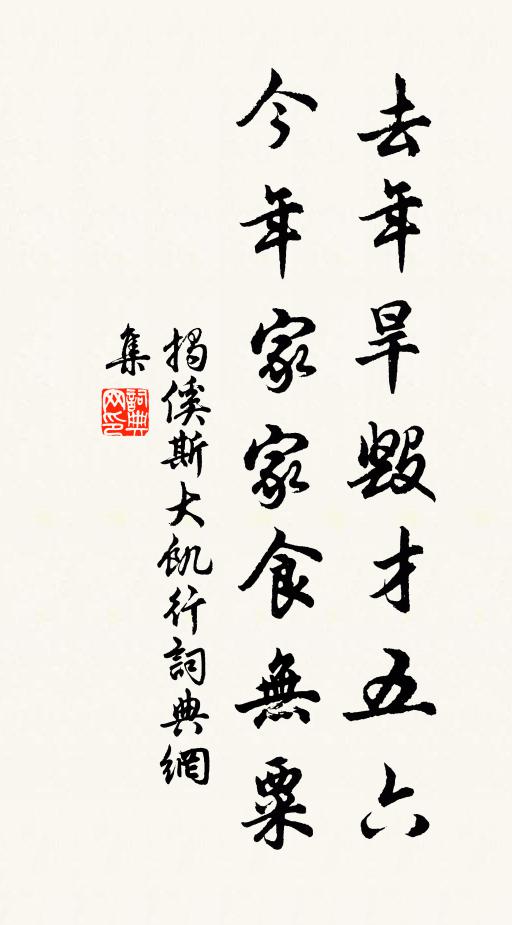 去年旱毀才五六
今年家家食無粟
揭傒斯大飢行詞典網
集
詞典網印